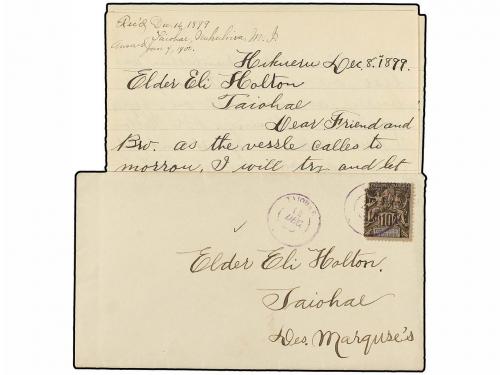 Rec'd Dec. 16, 1899
Taiohae, Nukuhiva, M. I.
Ans'd Jan 9, 1900.
Hikueru Dec. 8, 1899.
Elder Eli Holton
Taiohae
Dear Friend and
Bro. as the vessle calles to
morrow, I will try and let
TAIOHAE
DEC
10
Elder Eli Holton.
Taiohae
Des. Marquse's